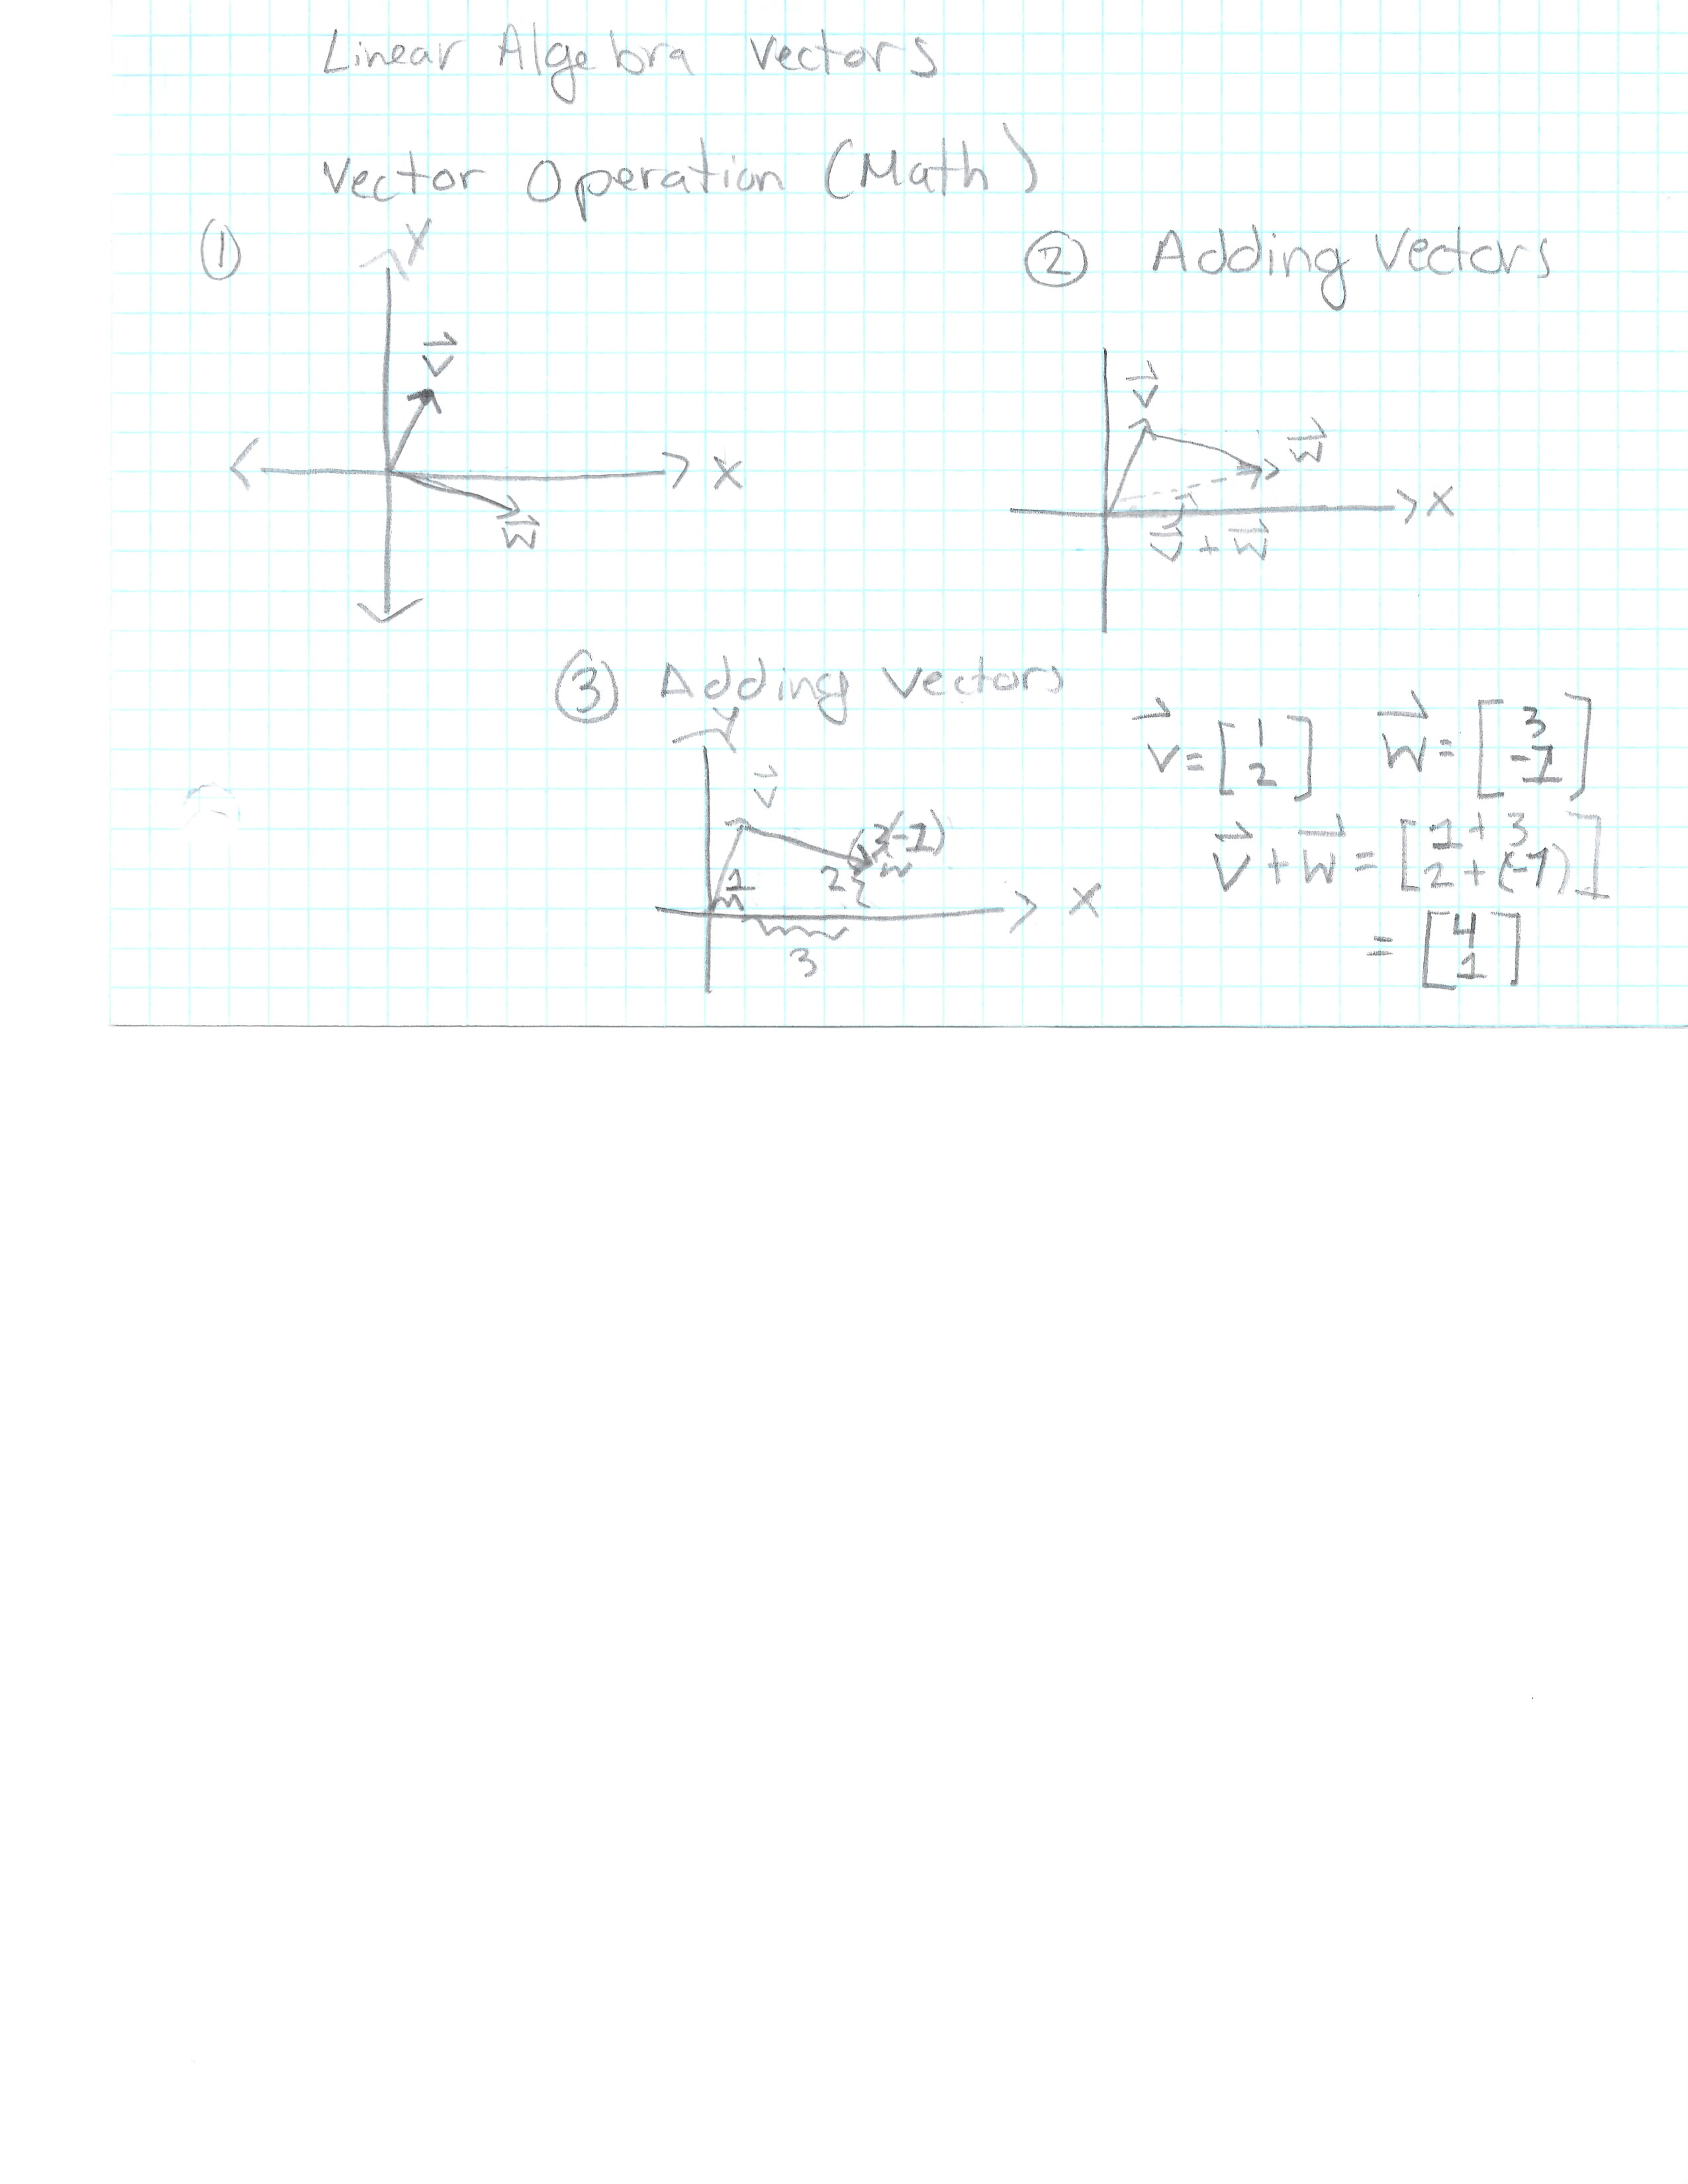 Linear Algebra Vectors
Vector Operation (Math)
① Y
V⃗
X
W⃗
② Adding Vectors
V⃗
W⃗
X
V⃗ + W⃗
③ Adding Vectors
Y
V⃗
(3(-1)
W
1
2
X
3
V⃗ = [1 2] W⃗ = [3 -1]
V⃗ + W⃗ = [1+3 2+(-1)]
= [4 1]